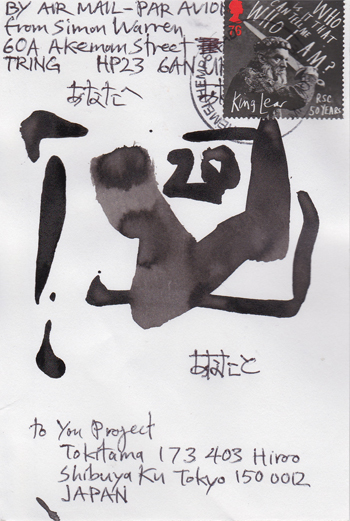 BY AIR MAIL-PAR AVION
from Simon Warren
60A Akeman Street
TRING HP23 6AN
あなたへ
76
WHO IS IT THAT
CAN TELL ME
WHO I AM?
King Lear
RSC
50 YEARS
20
あなたと
to You Project
Tokitama 173 403 Hiroo
Shibuya Ku Tokyo 150 0012
JAPAN